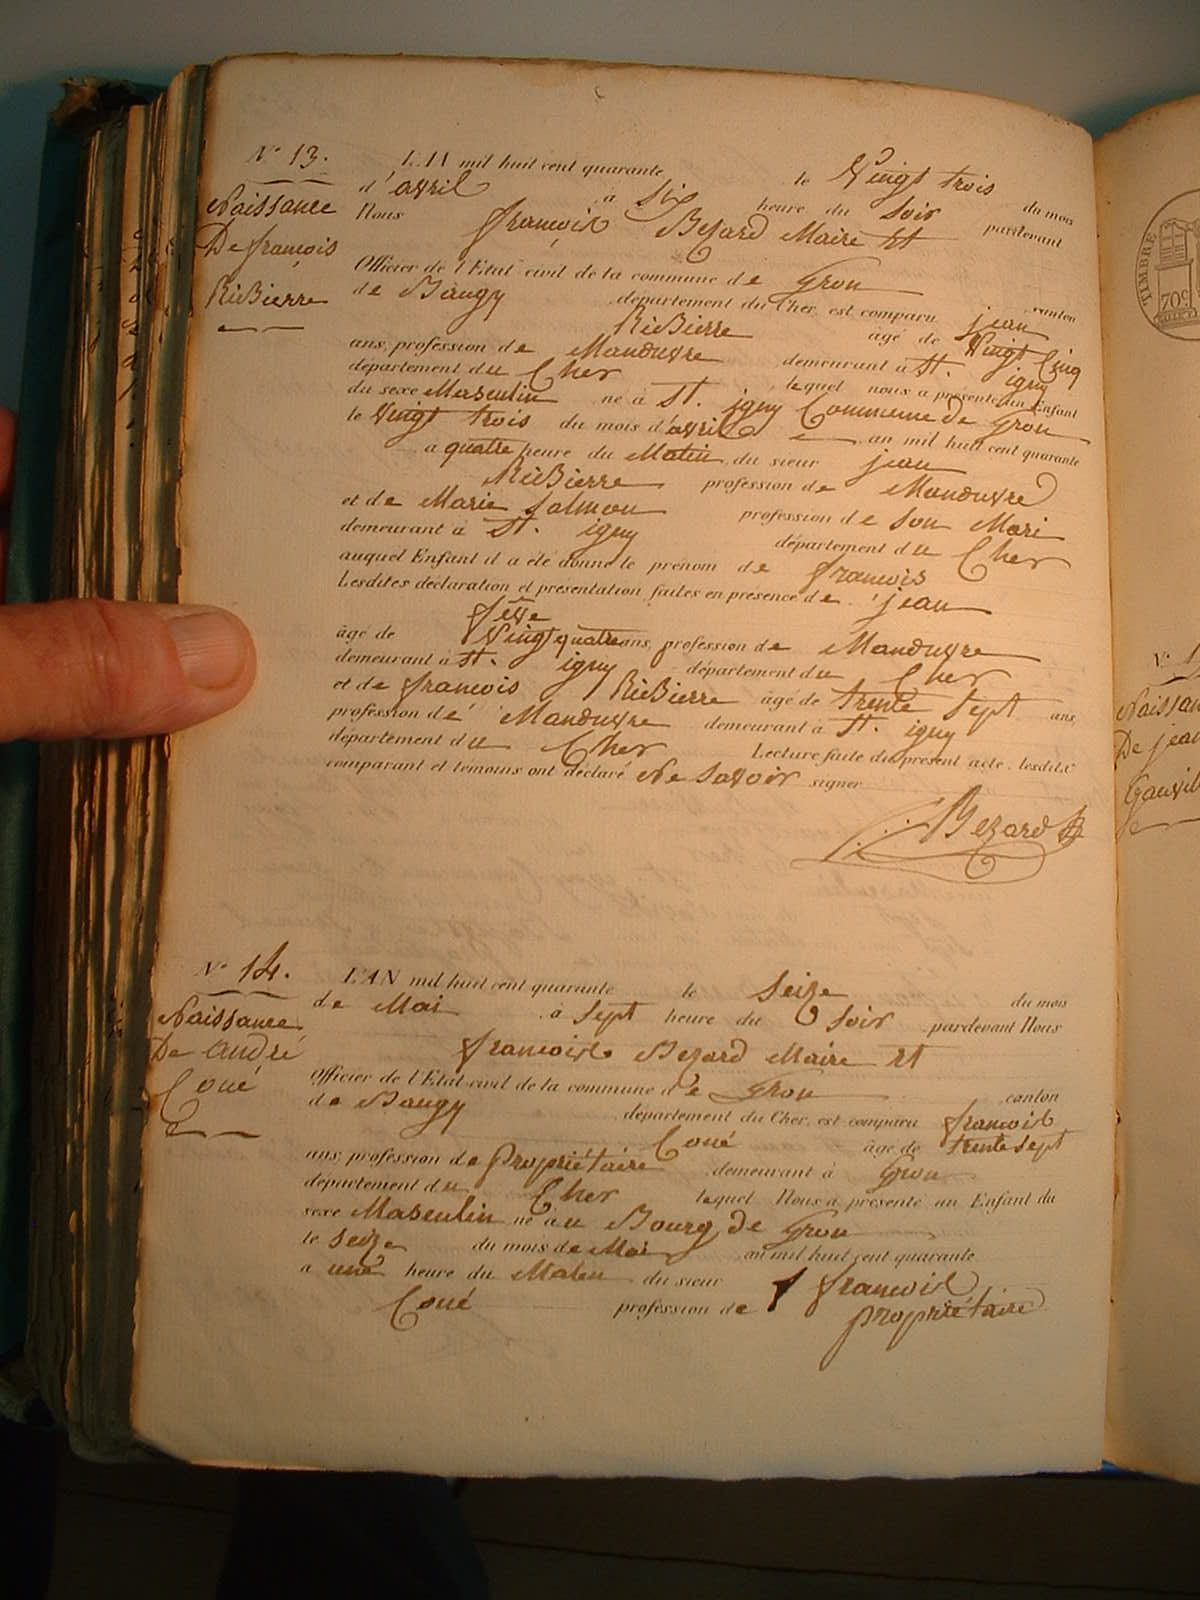 N° 13.
Naissance
De françois
RiBierre
L'AN mil huit cent quarante le Vingt trois du mois
d'avril à six heure du Soir pardevant
Nous françois Bezard Maire Et
Officier de l'Etat civil de la commune de Gron canton
de Baugy département du Cher, est comparu jean
RiBierre âgé de Vingt Cinq
ans, profession de Manœuvre demeurant à St. igny
département du Cher lequel nous a présenté un Enfant
du sexe Masculin né à St. igny Commune de Gron
le Vingt trois du mois d'avril an mil huit cent quarante
a quatre heure du Matin, du sieur jean
RiBierre profession de Manœuvre
et de Marie Salmon profession de son Mari
demeurant à St. igny département du Cher
auquel Enfant il a été donné le prénom de francois
Lesdites déclaration et présentation faites en présence de jean
âgé de Vingt quatre ans, profession de Manœuvre
demeurant à St. igny département du Cher
et de francois RiBierre âgé de trente Sept ans,
profession de Manœuvre demeurant à St. igny
département du Cher Lecture faite du présent acte, lesdits
comparant et témoins ont déclaré Ne Savoir signer
Bezard
N° 14.
Naissance
De André
Coué
L'AN mil huit cent quarante le Seize du mois
de Mai à Sept heure du Soir pardevant Nous
francois Bezard Maire Et
Officier de l'Etat civil de la commune de Gron canton
de Baugy département du Cher, est comparu francois
Coué âgé de trente sept
ans, profession de Propriétaire demeurant à Gron
département du Cher lequel Nous a présenté un Enfant du
sexe Masculin né au Bourg de Gron
le seize du mois de Mai an mil huit cent quarante
a une heure du Matin du sieur francois
Coué profession de propriétaire
TIMBRE
70c
Naissan
De jean
Gauvil